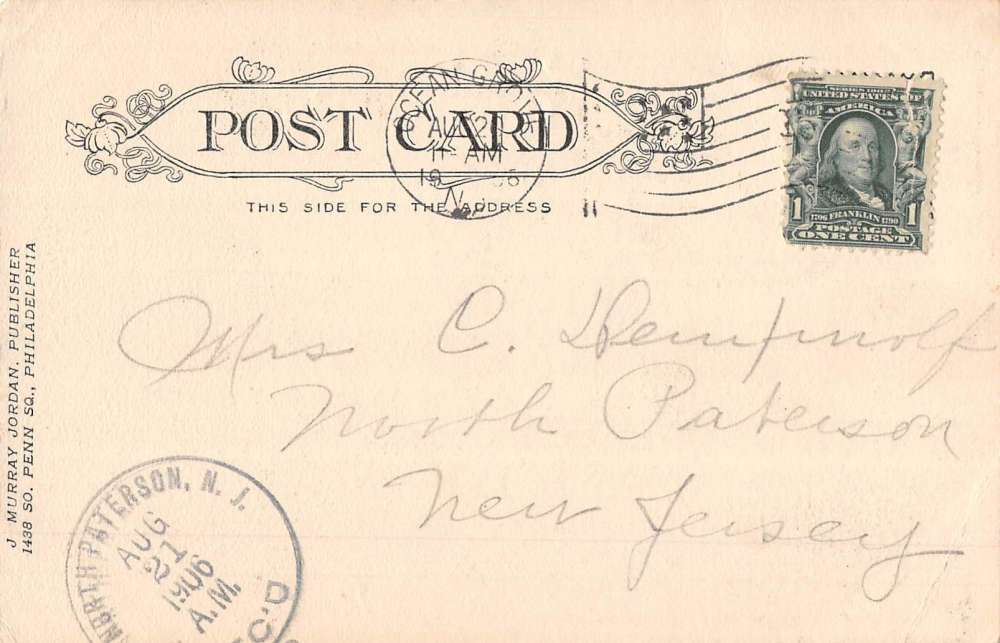 POST CARD
THIS SIDE FOR THE ADDRESS
OCEAN GROVE
11- AM
N.J.
SERIES 1902
UNITED STATES OF
AMERICA
1 1
1706 FRANKLIN 1790
POSTAGE
ONE CENT
J MURRAY JORDAN. PUBLISHER
1438 SO. PENN SQ., PHILADELPHIA
Mrs C.
North Paterson
New Jersey
NORTH PATERSON, N. J.
AUG
21
1906
A.M.
REC'D